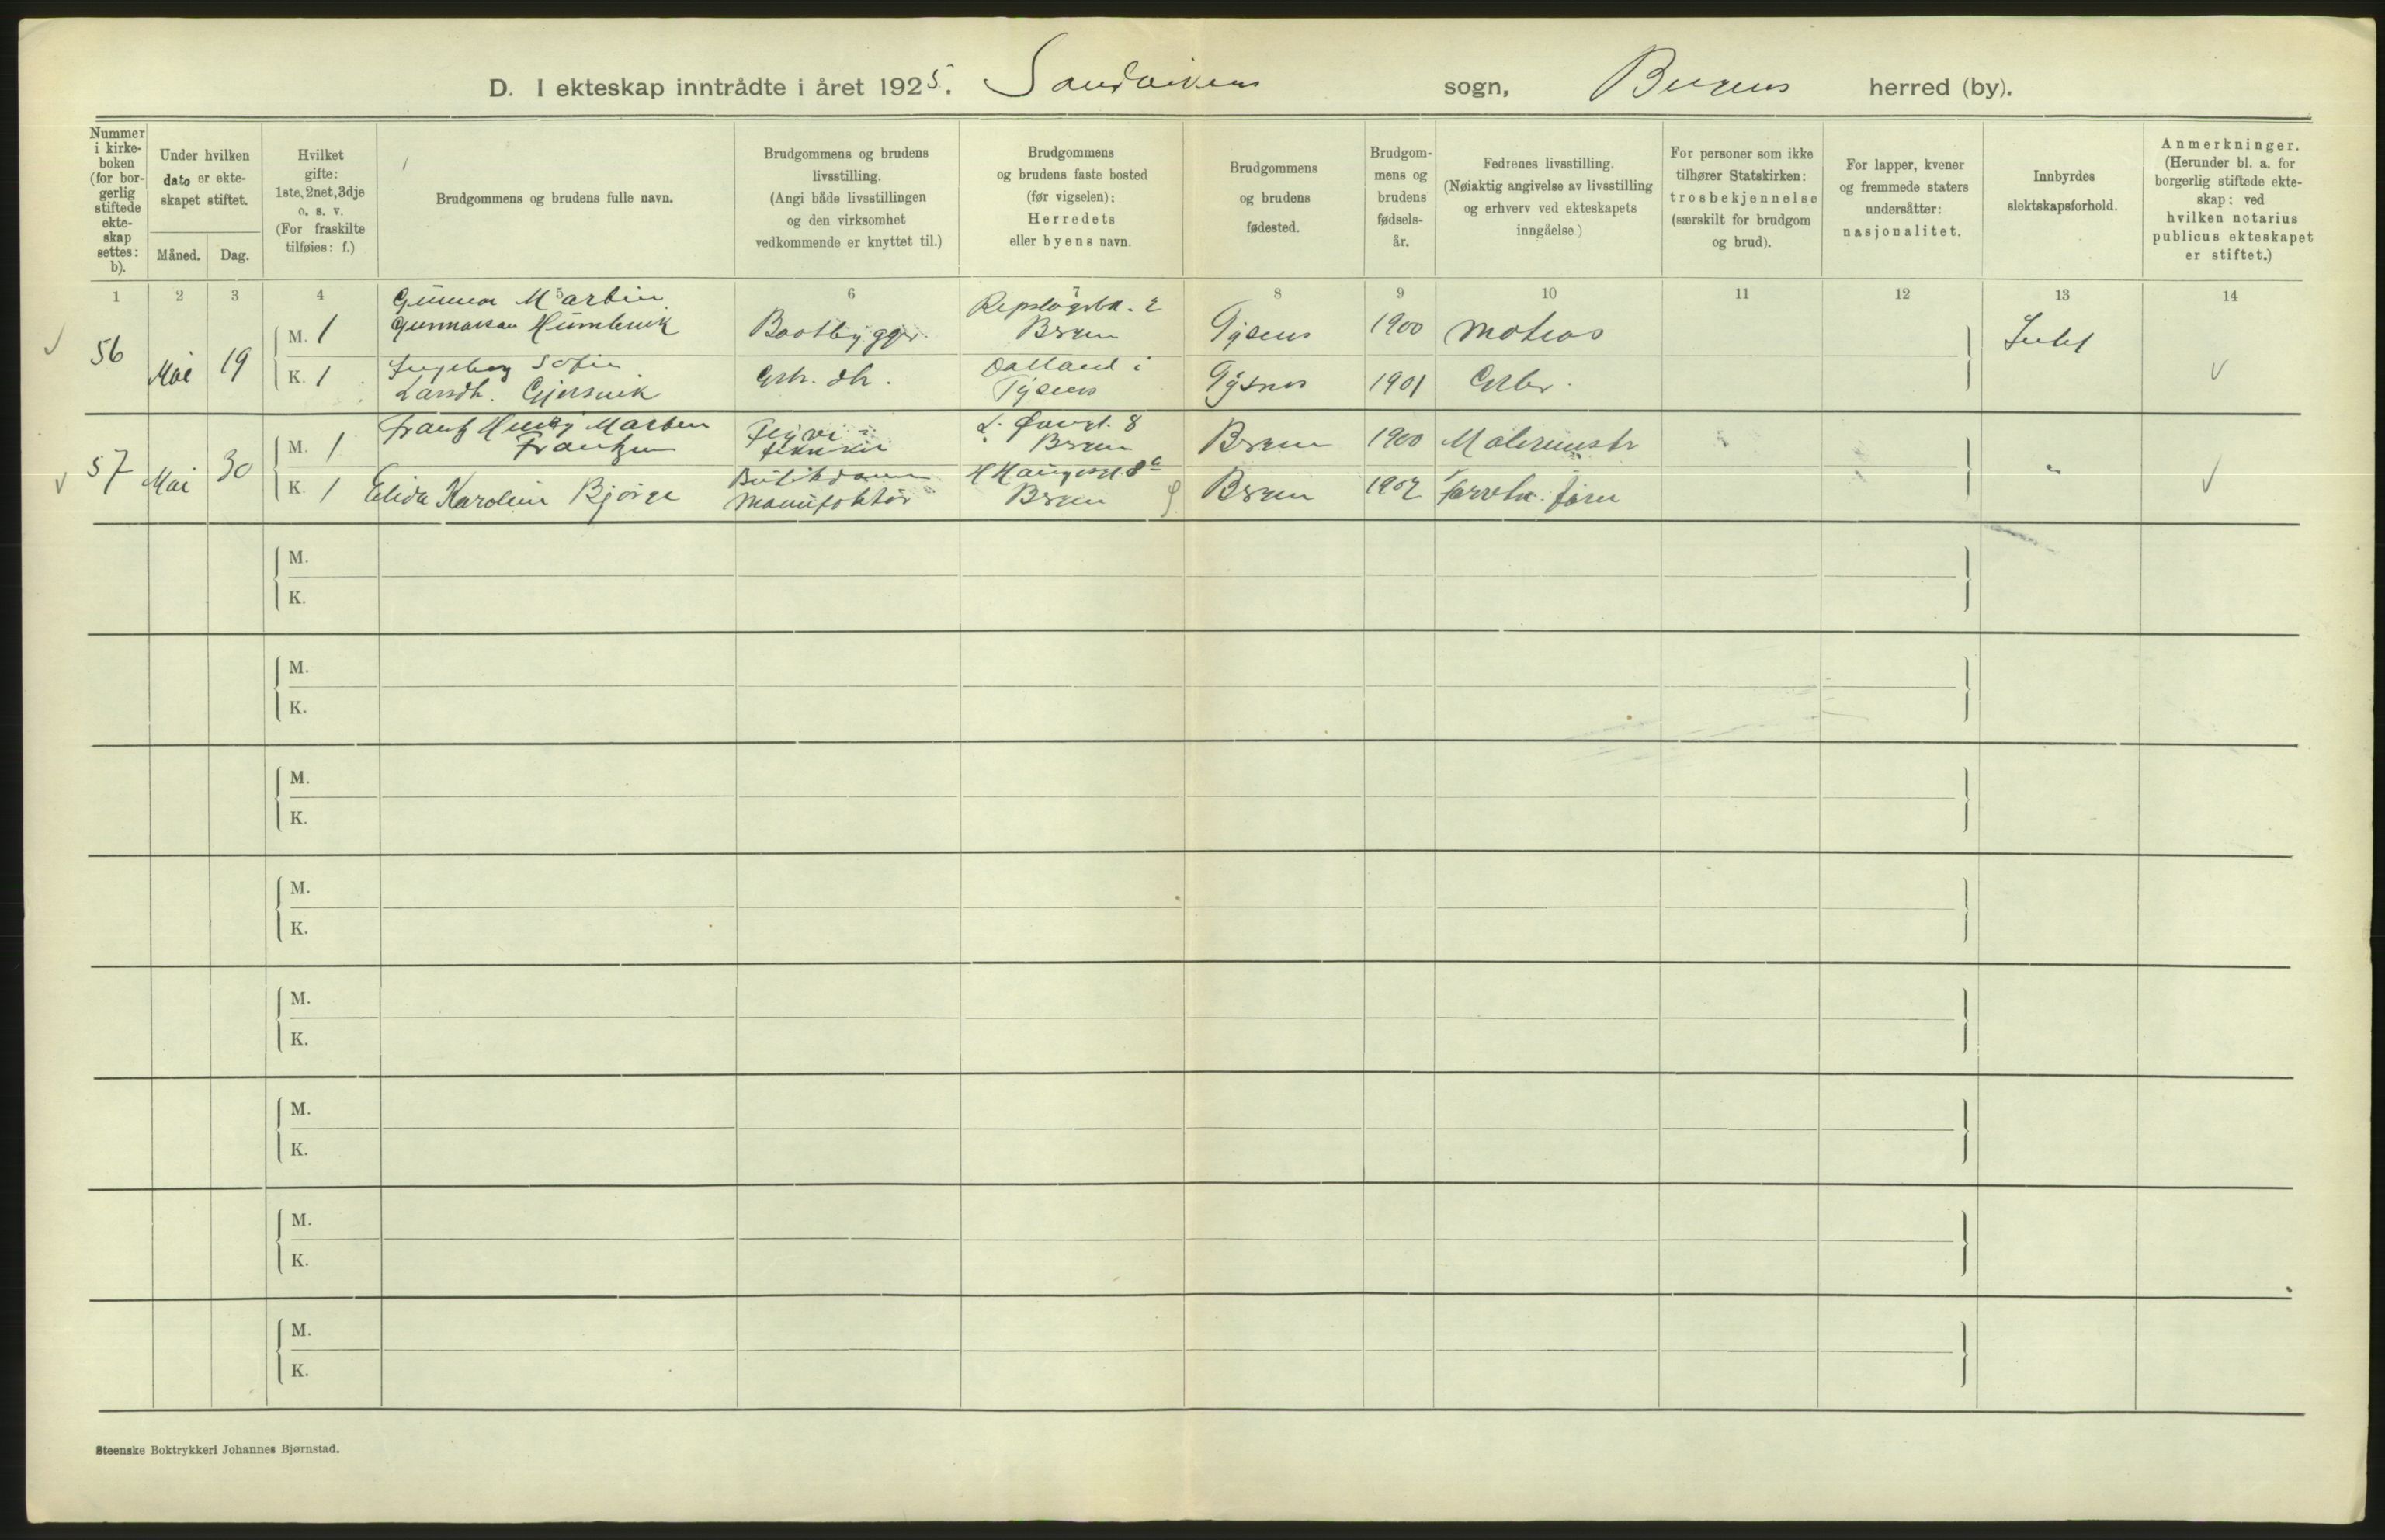 D. I ekteskap inntrådte i året 1925. Sandvikens sogn, Bergens herred (by).
Nummer i kirke-boken (for bor-gerlig stiftede ekte-skap settes: b).
Under hvilken dato er ekte-skapet stiftet.
Måned. Dag.
Hvilket gifte: 1ste, 2net, 3dje o. s. v. (For fraskilte tilføies: f.)
Brudgommens og brudens fulle navn.
Brudgommens og brudens livsstilling. (Angi både livsstillingen og den virksomhet vedkommende er knyttet til.)
Brudgommens og brudens faste bosted (før vigselen): Herredets eller byens navn.
Brudgommens og brudens fødested.
Brudgom-mens og brudens fødsels-år.
Fedrenes livsstilling. (Nøiaktig angivelse av livsstilling og erhverv ved ekteskapets inngåelse)
For personer som ikke tilhører Statskirken: trosbekjennelse (særskilt for brudgom og brud).
For lapper, kvener og fremmede staters undersåtter: nasjonalitet.
Innbyrdes slektskapsforhold.
Anmerkninger. (Herunder bl. a. for borgerlig stiftede ekte-skap: ved hvilken notarius publicus ekteskapet er stiftet.)
1 2 3 4 5 6 7 8 9 10 11 12 13 14
56 Mai 19
M. 1 Gunnar Martin Gunnarsan Humlevik Baatbygger Repslagrbk. 2 Bergen Tysnes 1900 Matros
K. 1 Ingeborg Sofie Larsdtr. Gjersvik Dalland i Tysnes Tysnes 1901 Arbr.
57 Mai 30
M. 1 Frantz Henry Marten Frantzen 8 Bergen Bergen 1900 Malermstr
K. 1 Elida Karoline Bjørge Butikdame Manufaktur H Haugesgt. 8 Bergen Bergen 1902
M.
K.
M.
K.
M.
K.
M.
K.
M.
K.
M.
K.
M.
K.
M.
K.
Steenske Boktrykkeri Johannes Bjørnstad.